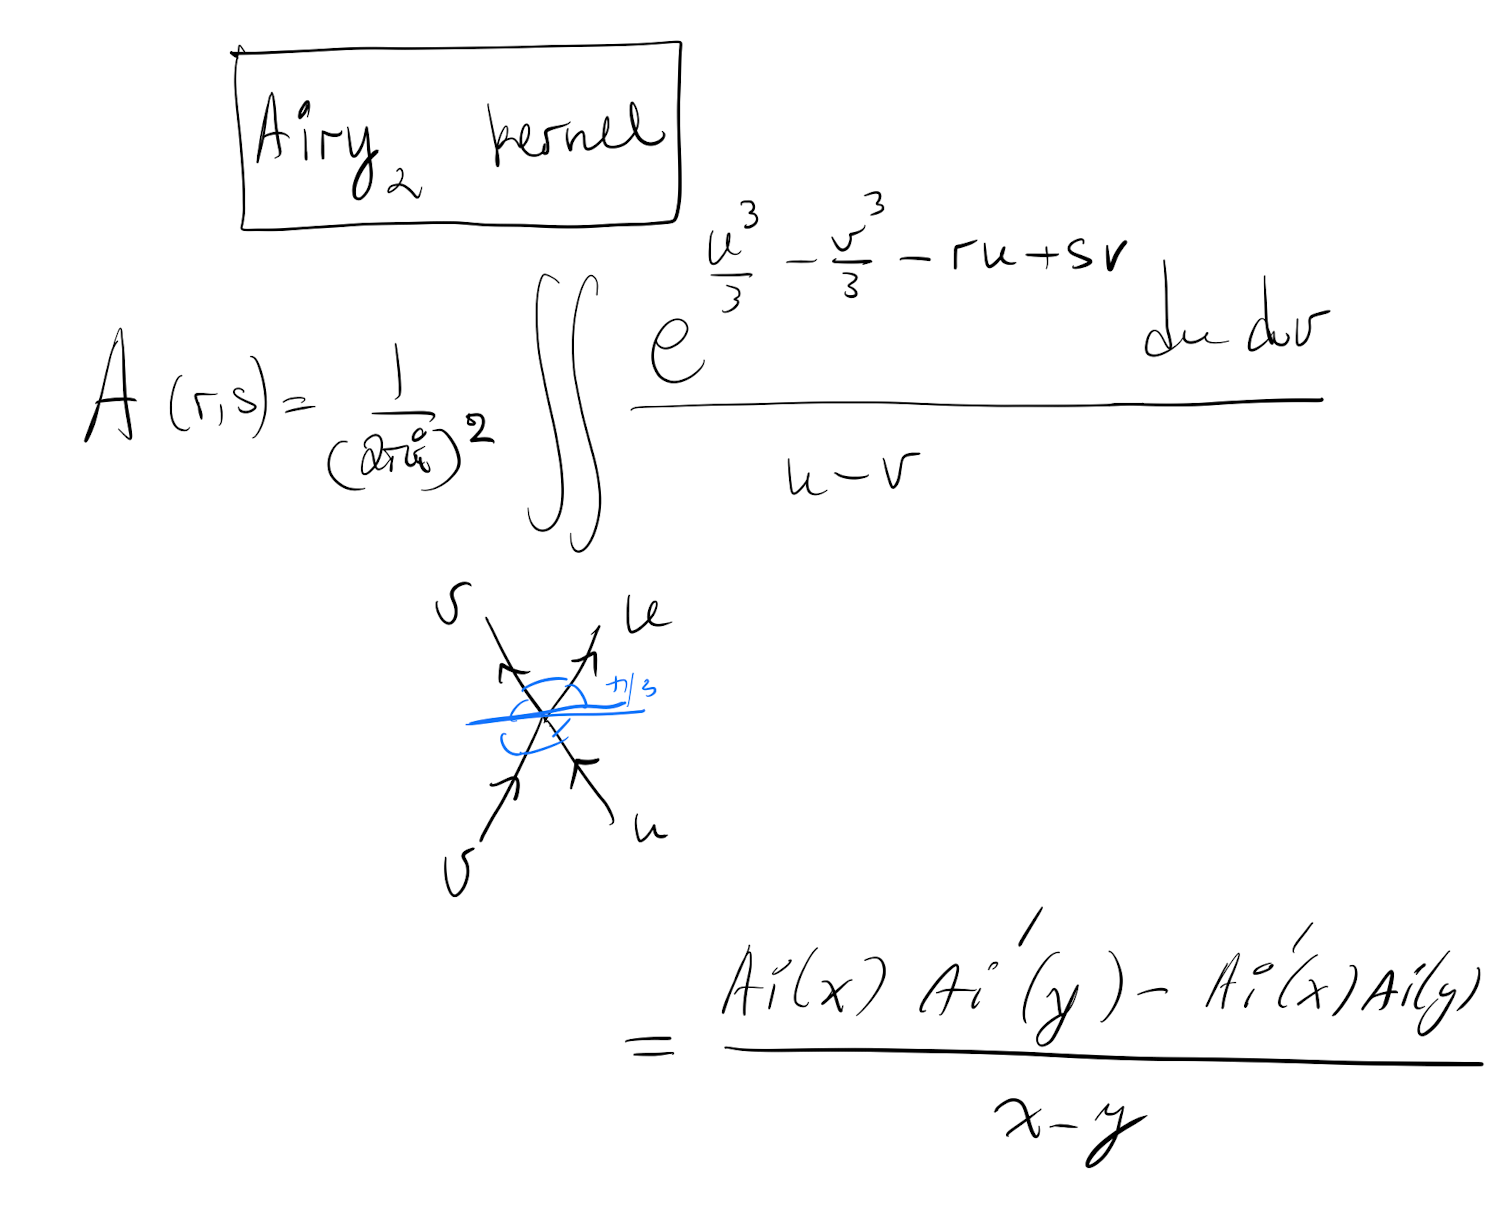 Airy₂ kernel
A(r,s) = \frac{1}{(2πi)^2} ∬ \frac{e^{\frac{u^3}{3} - \frac{v^3}{3} - ru + sv} du dv}{u - v}
v u
π/3
v u
= \frac{Ai(x) Ai'(y) - Ai'(x) Ai(y)}{x - y}